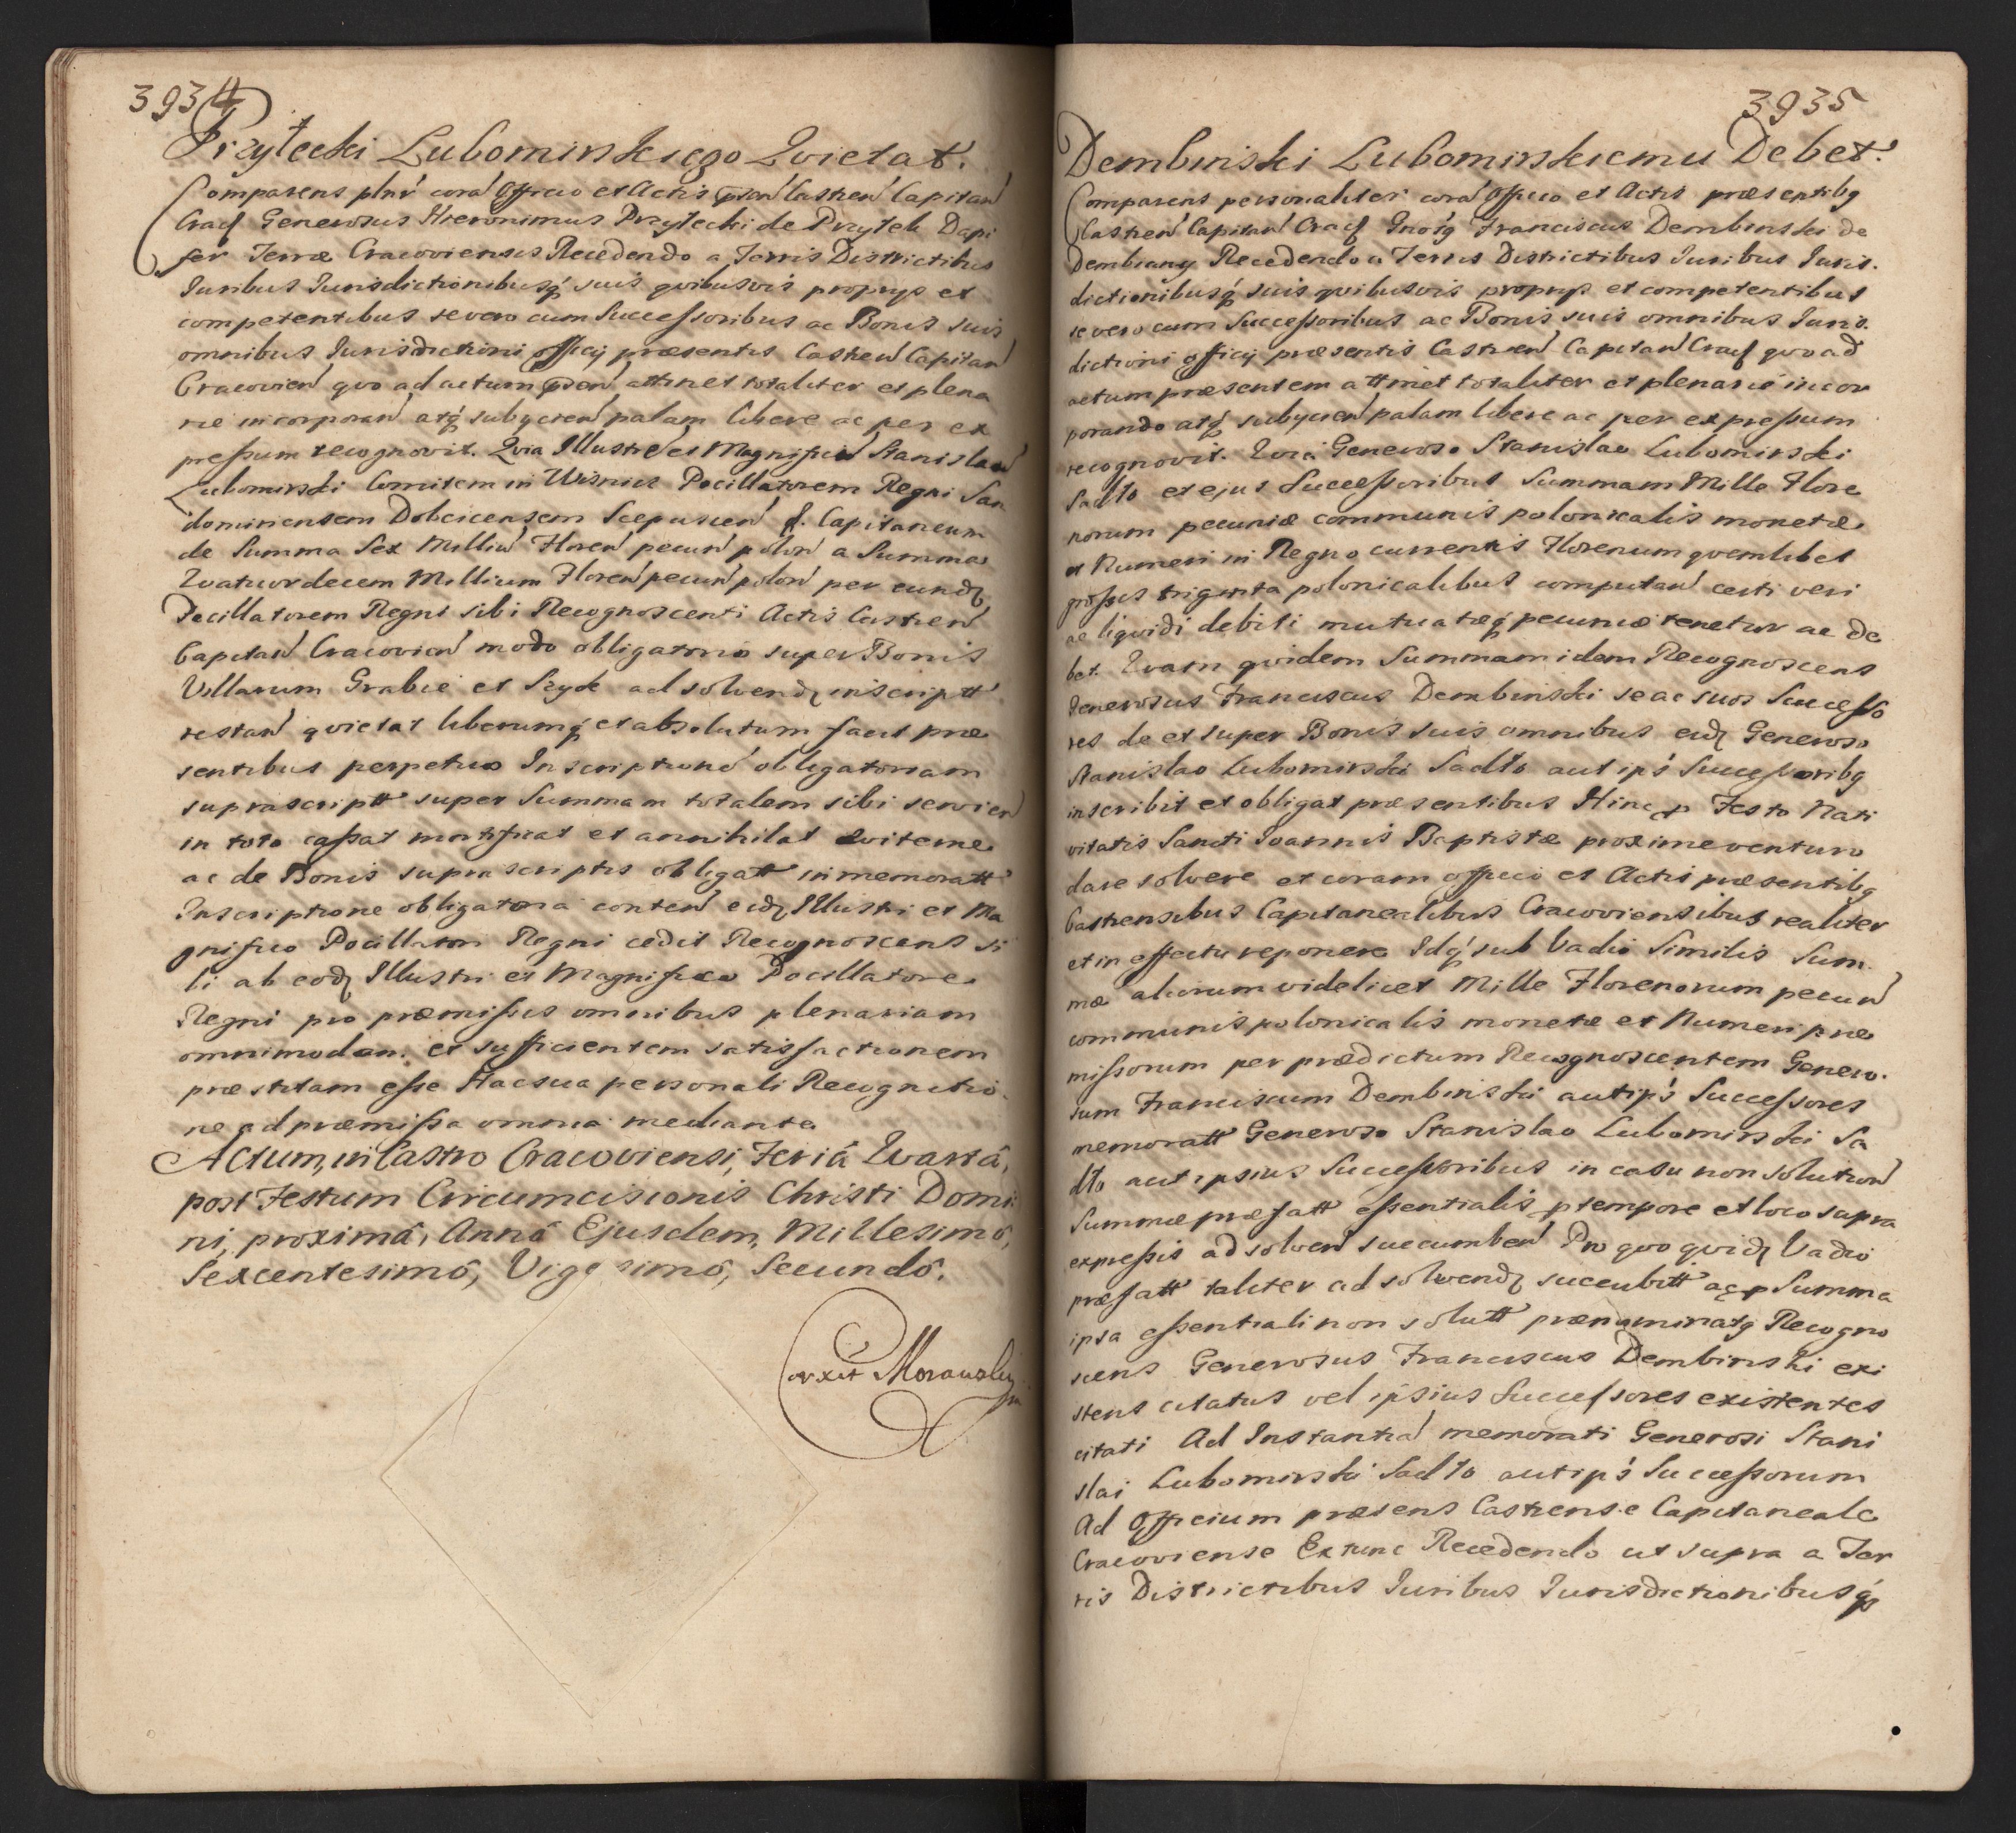 3934
Przyłecki Lubomirskiego Qvietat.
Comparens plnr cora Officio et Actis pn Castren Capitan
Crac Generosus Hieronimus Przyłecki de Przyłek Dapi
fer Terræ Cracoviensis Recedendo a Terris Districtibus
Iuribus Iurisdictionibusq suis qvibusvis proprys et
competentibus se vero cum Successoribus ac Bonis suis
omnibus Iurisdictioni officij præsentis Castren Capitan
Cracovien qvo ad actum pn attinet totaliter et plena
rie incorporan atq subycien palam libere ac per ex
pressum recognovit. Qvia Illustre et Magnificu Stanislau
Lubomirski Comitem in Wisnicz Pocillatorem Regni San
domiriensem Dobcicensem Scepusien &. Capitaneum
de Summa Sex Milliu Floren pecun polon a Summa
Qvatuordecem Millium Floren pecun polon per eund
Pocillatorem Regni sibi Recognoscenti Actis Castren
Capitan Cracovien modo obligatorio super Bonis
Villarum Grabie et Szyk ad solvend inscriptt
restan qvietat liberumq et absolutum facit præ
sentibus perpetuo Inscriptione obligatoriam
suprascriptt super Summam totalem sibi servien
in toto cassat mortificat et annihilat Qviteme
ac de Bonis supra scriptis obligatt in memoratt
Inscriptione obligatoria conten eid Illustri et Ma
gnifico Pocillatori Regni cedit Recognoscens si
bi ab eod Illustri et Magnifico Pocillatore
Regni pro præmissis omnibus plenariam
omnimodam et sufficientem satisfactionem
præstitam esse Hac sua personali Recognitio
ne ad præmissa omnia mediante
Actum, in Castro Cracoviensi, Feriâ Qvartâ,
post Festum Circumcisionis Christi Domi
ni, proximâ, Annô Ejusdem, Millesimô,
Sexcentesimô, Vigesimô, Secundô.
Corxit Morawsky
3935
Dembinski Lubomirskiemu Debet.
Comparens personaliter cora Officio et Actis præsentibq
Castren Capitan Crac Gnosq Franciscus Dembinski de
Dembiany Recedendo a Terris Districtibus Iuribus Iuris.
dictionibusq suis qvibusvis proprys et competentibus
se vero cum Successoribus ac Bonis suis omnibus Iuris.
dictioni officij præsentis Castren Capitan Crac qvo ad
actum præsentem attinet totaliter et plenarie incor
porando atq subycien palam libere ac per expressum
recognovit. Qvia Generoso Stanislao Lubomirski
Sadło et ejus Successoribus Summam Mille Flore
norum pecuniæ communis polonicalis monetæ
et Numeri in Regno currentis Florenum qvemlibet
grossis triginta polonicalibus computan certi veri
ac liqvidi debiti mutuatæq pecuniæ tenetur ac De
bet. Qvam qvidem Summam idem Recognoscens
Generosus Franciscus Dembinski se ac suos Successo
res de et super Bonis suis omnibus eid Generoso
Stanislao Lubomirski Sadło aut ips Successoribq
inscribit et obligat præsentibus Hinc p Festo Nati
vitatis Sancti Ioannis Baptistæ proxime venturo
dare solvere et coram officio et Actis præsentibq
Castrensibus Capitanealibus Cracoviensibus realiter
et in effectu reponere Idq sub Vadio Similis Sum
mæ aliorum videlicet Mille Florenorum pecun
communis polonicalis monetæ et Numeri præ
missorum per prædictum Recognoscentem Genero.
sum Franciscum Dembinski aut ips Successores
memoratt Generoso Stanislao Lubomirski Sa
dło aut ipsius Successoribus in casu non solution
Summæ præfatt essentialis p tempore et loco supra
expressis ad solven succumben Pro qvo qvid Vadio
præfatt taliter ad solvend succubitt ac p Summa
ipsa essentiali non solutt prænominatq Recogno
scens Generosus Franciscus Dembinski exi
stens citatus vel ipsius Successores existentes
citati Ad Instantia memorati Generosi Stani
slai Lubomirski Sadło aut ips Successorum
Ad Officium præsens Castrense Capitaneale
Cracoviense Ex tunc Recedendo ut supra a Ter
ris Districtibus Iuribus Iurisdictionibusq